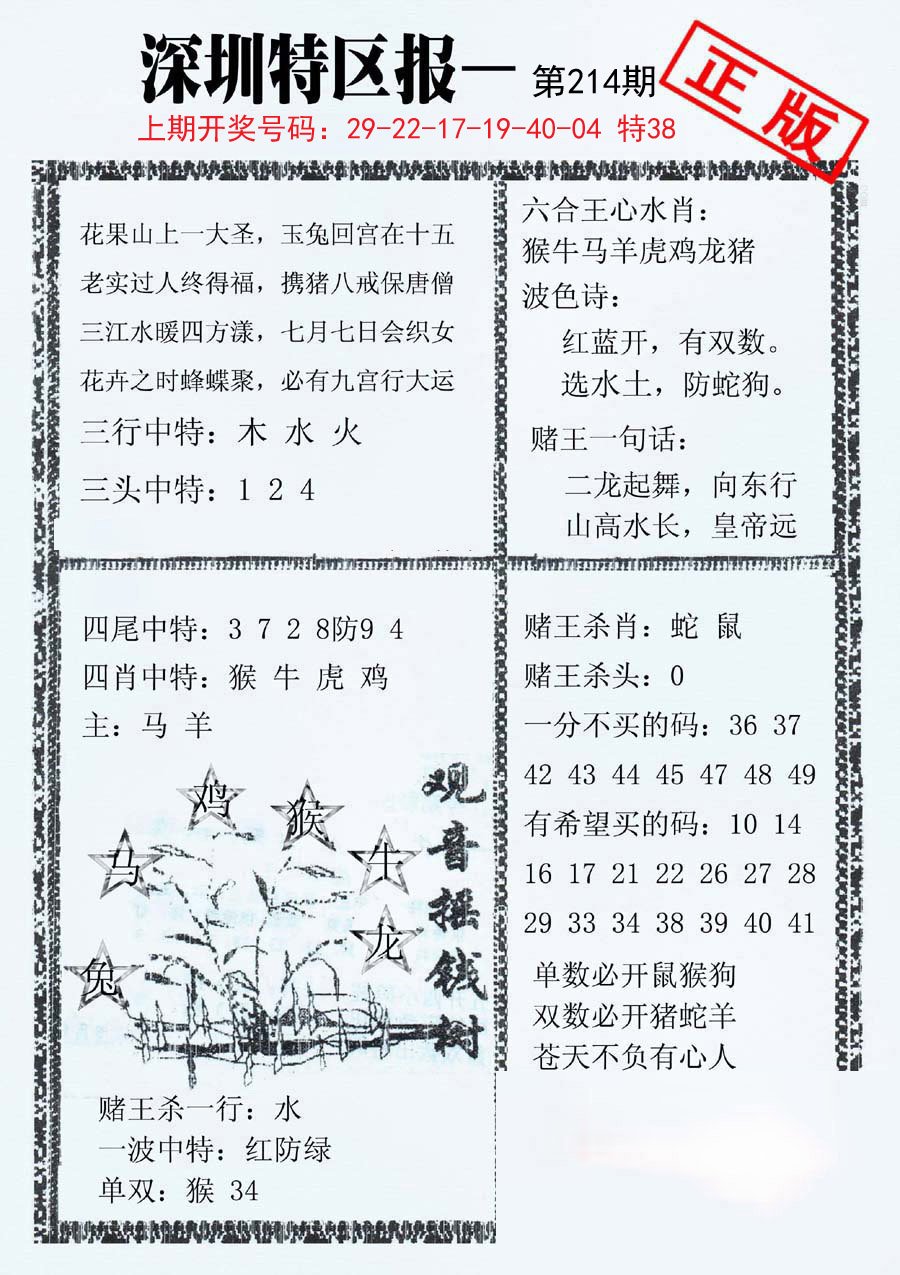 深圳特区报一 第214期
正版
上期开奖号码：29-22-17-19-40-04 特38
花果山上一大圣，玉兔回宫在十五
老实过人终得福，携猪八戒保唐僧
三江水暖四方漾，七月七日会织女
花卉之时蜂蝶聚，必有九宫行大运
三行中特：木 水 火
三头中特：1 2 4
六合王心水肖：
猴牛马羊虎鸡龙猪
波色诗：
红蓝开，有双数。
选水土，防蛇狗。
赌王一句话：
二龙起舞，向东行
山高水长，皇帝远
四尾中特：3 7 2 8防9 4
四肖中特：猴 牛 虎 鸡
主：马 羊
鸡
猴
马
牛
龙
兔
观音摇钱树
赌王杀一行：水
一波中特：红防绿
单双：猴 34
赌王杀肖：蛇 鼠
赌王杀头：0
一分不买的码：36 37
42 43 44 45 47 48 49
有希望买的码：10 14
16 17 21 22 26 27 28
29 33 34 38 39 40 41
单数必开鼠猴狗
双数必开猪蛇羊
苍天不负有心人